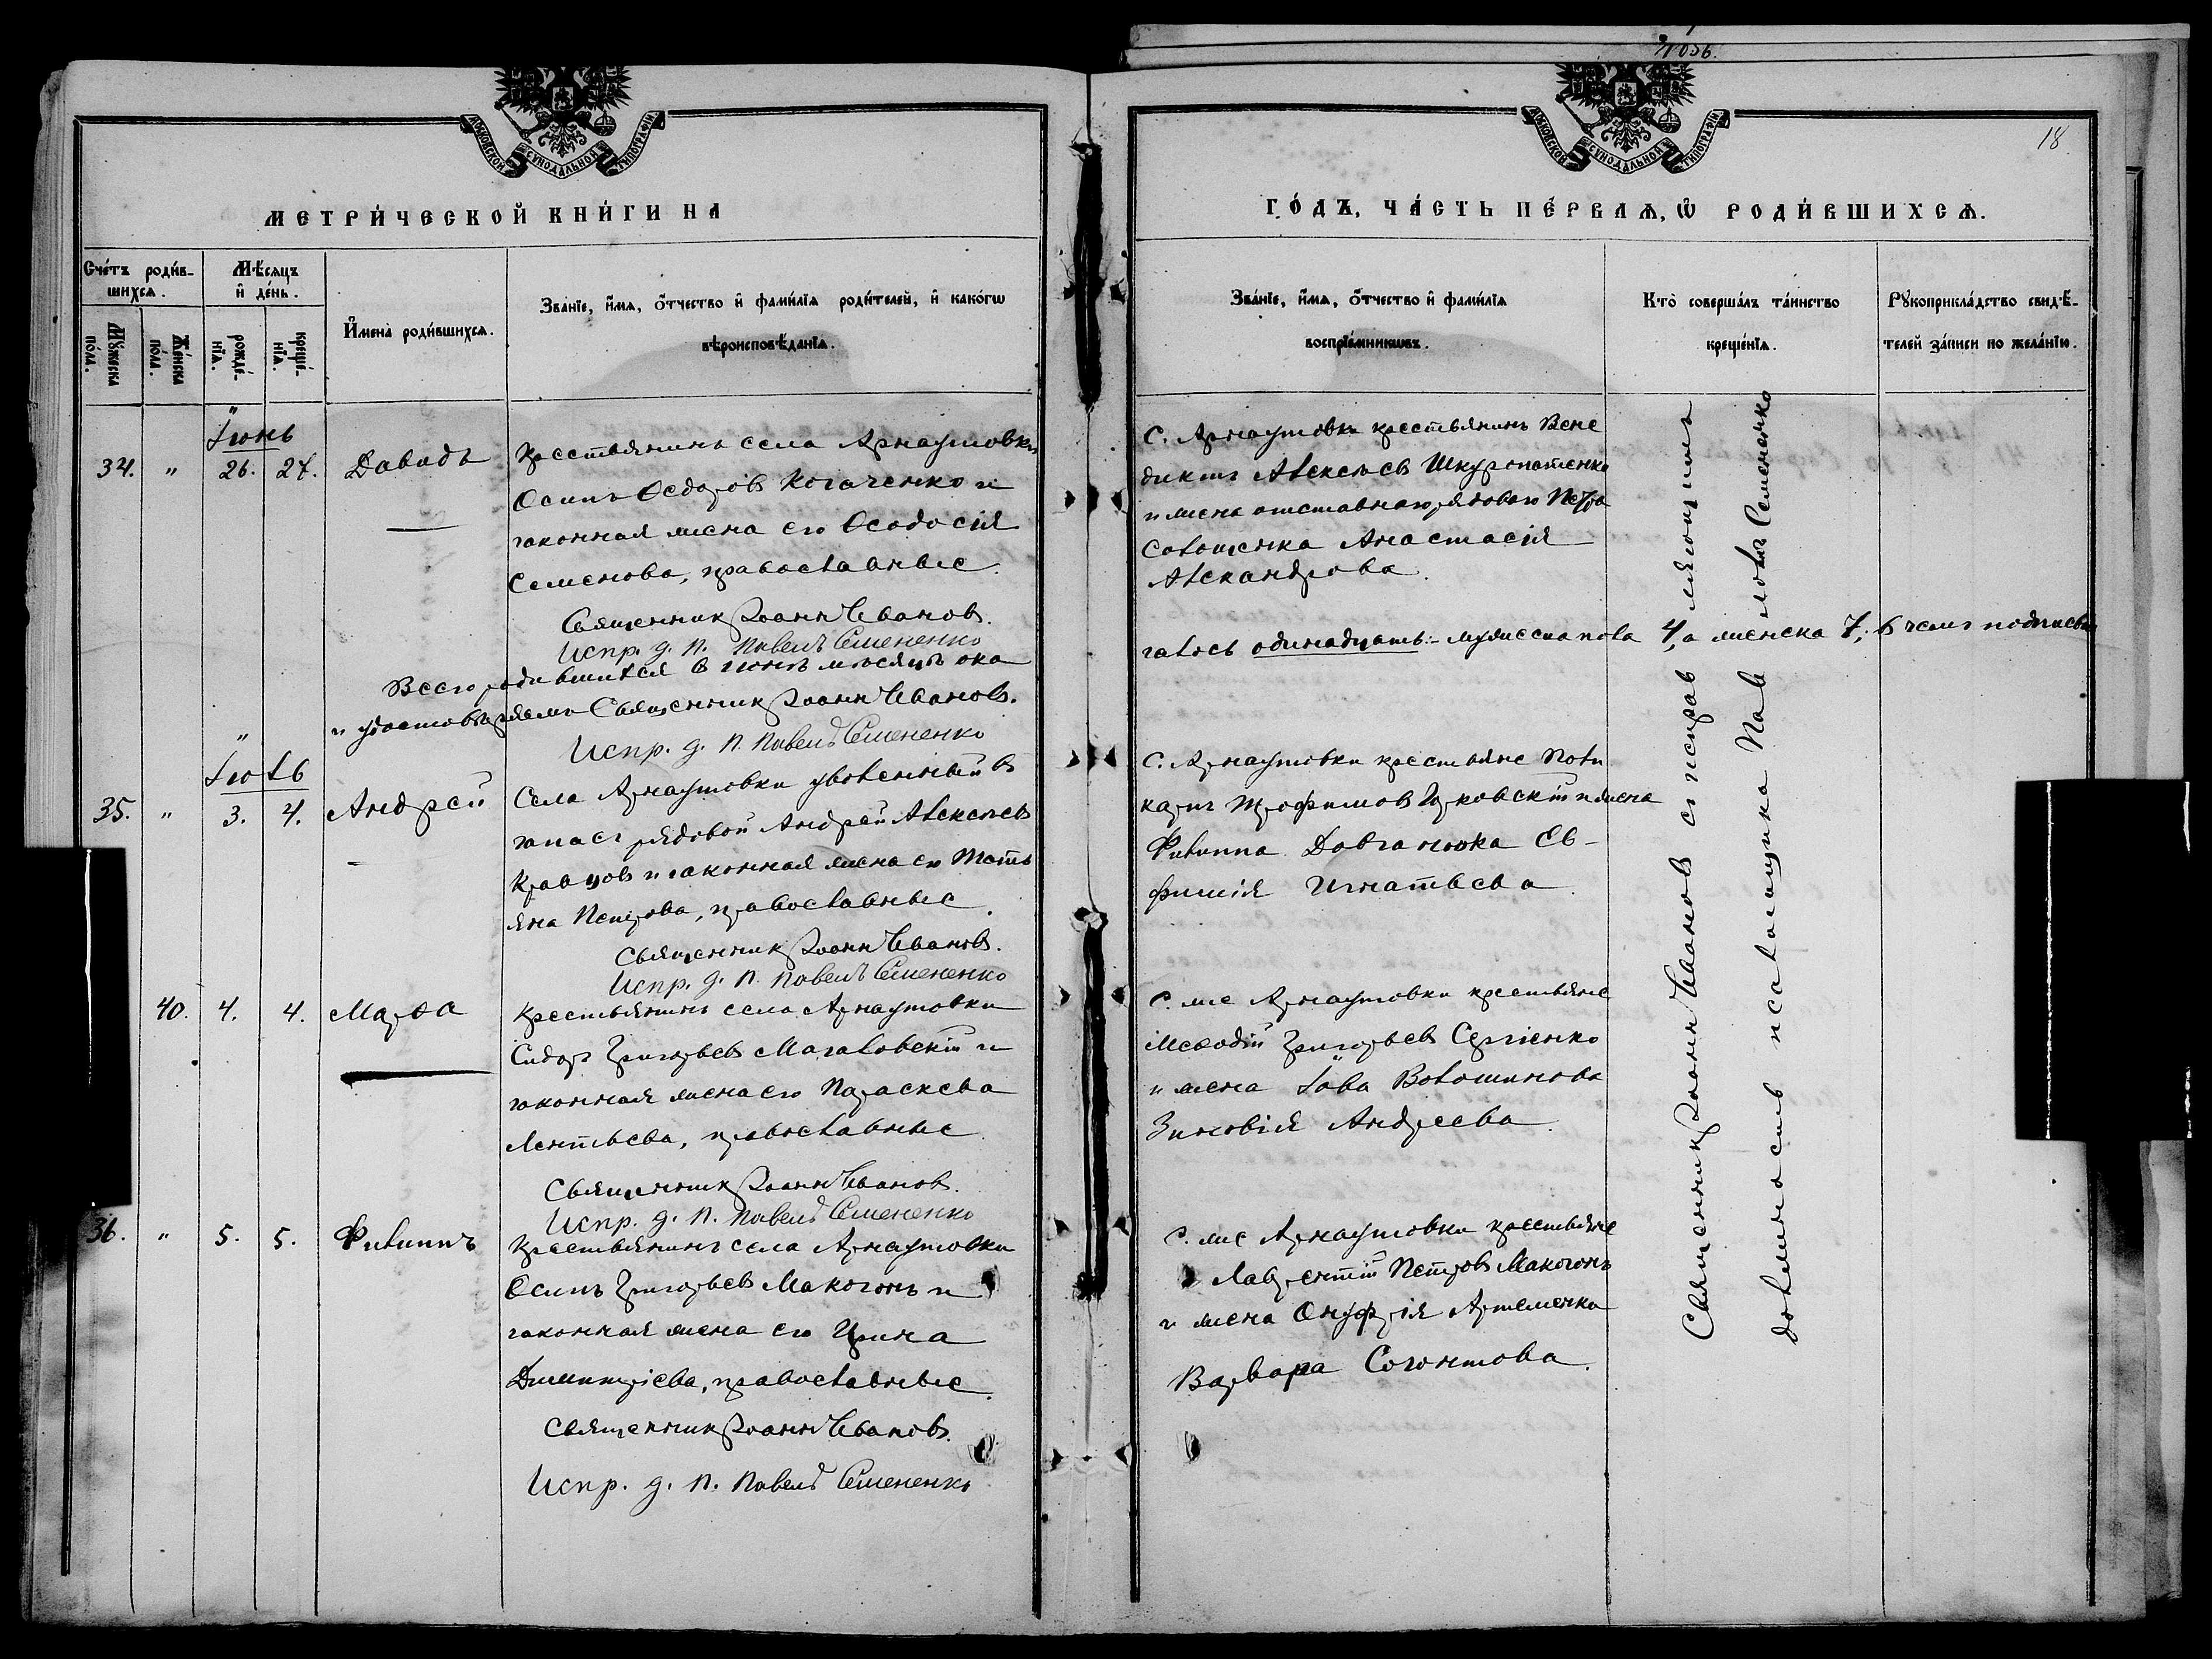 № 056.
МОСКОВСКОЙ СУНОДАЛЬНОЙ ТИПОГРАФІИ
МОСКОВСКОЙ СУНОДАЛЬНОЙ ТИПОГРАФІИ
18
МЕТРИ́ЧЕСКОЙ КНИ́ГИ НА
ГО́ДЪ, ЧА́СТЬ ПЕ́РВАѦ, Ѽ РОДИ́ВШИХСѦ.
Сче́тъ роди́в-
шихсѧ.
Мѣ́сяцъ
и҆ де́нь.
Мꙋ́жеска
по́ла.
Же́нска
по́ла.
рожде́-
нїѧ.
креще́-
нїѧ.
И҆мена̀ роди́вшихсѧ.
Зва́нїе, и҆́мѧ, ѻ҆́тчество и҆ фами́лїѧ роди́телей, и҆ како́гѡ
вѣроисповѣ́данїѧ.
Зва́нїе, и҆́мѧ, ѻ҆́тчество и҆ фами́лїѧ
воспрїе́мникѡвъ.
Кто̀ соверша́лъ та́инство
креще́нїѧ.
Рꙋкоприкла́дство свидѣ́-
телей за́писи по жела́нїю.
Іюнь
34. " 26. 27. Давидъ
Крестьянинъ села Арнаутовки
Осипъ Ѳедоровъ Когаченко и
законная жена его Ѳеодосія
Семенова, православные.
Священник Іоанн Иванов.
Испр. д. п. Павелъ Семененко
С. Арнаутовки крестьянинъ Вене
диктъ Алексѣевъ Шкуропатенко
и жена отставнаго рядоваго Петра
Солошенка Анастасія
Александрова.
Всего родившихся в іюнѣ мѣсяцѣ ока
залось одинадцать: мужеска пола 4, а женска 7; в чемъ подписью
и удостовѣряемъ Священник Іоанн Иванов.
Испр. д. п. Павелъ Семененко
Іюль
35. " 3. 4. Андрей
Села Арнаутовки уволенный в
запасъ рядовой Андрей Алексѣев
Кравцов и законная жена его Тать
яна Петрова, православные.
Священник Іоанн Иванов.
Испр. д. п. Павелъ Семененко
С. Арнаутовки крестьяне Поли
карпъ Трофимов и жена
Филиппа Довганюка Ев-
фимія Игнатьева.
40. 4. 4. Марѳа
Крестьянинъ села Арнаутовки
Сидор Григорьев Магаловскій и
законная жена его Параскева
Лентьева, православные.
Священник Іоанн Иванов.
Испр. д. п. Павелъ Семененко
С. же Арнаутовки крестьяне
Меѳодій Григорьев Сергіенко
и жена Іова Волошинова
Зиновія Андреева.
36. " 5. 5. Филиппъ
Крестьянинъ села Арнаутовки
Осипъ Григорьев Макогонъ и
законная жена его Ирина
Димитріева, православные.
Священник Іоанн Иванов.
Испр. д. п. Павелъ Семененко
С. же Арнаутовки крестьяне
Лаврентій Петров Макогонъ
и жена Онуфрія Артеменка
Варвара Созонтова.
Священник Іоанн Иванов с исправ ляющимъ
должность псаломщика Пав ломъ Семененко